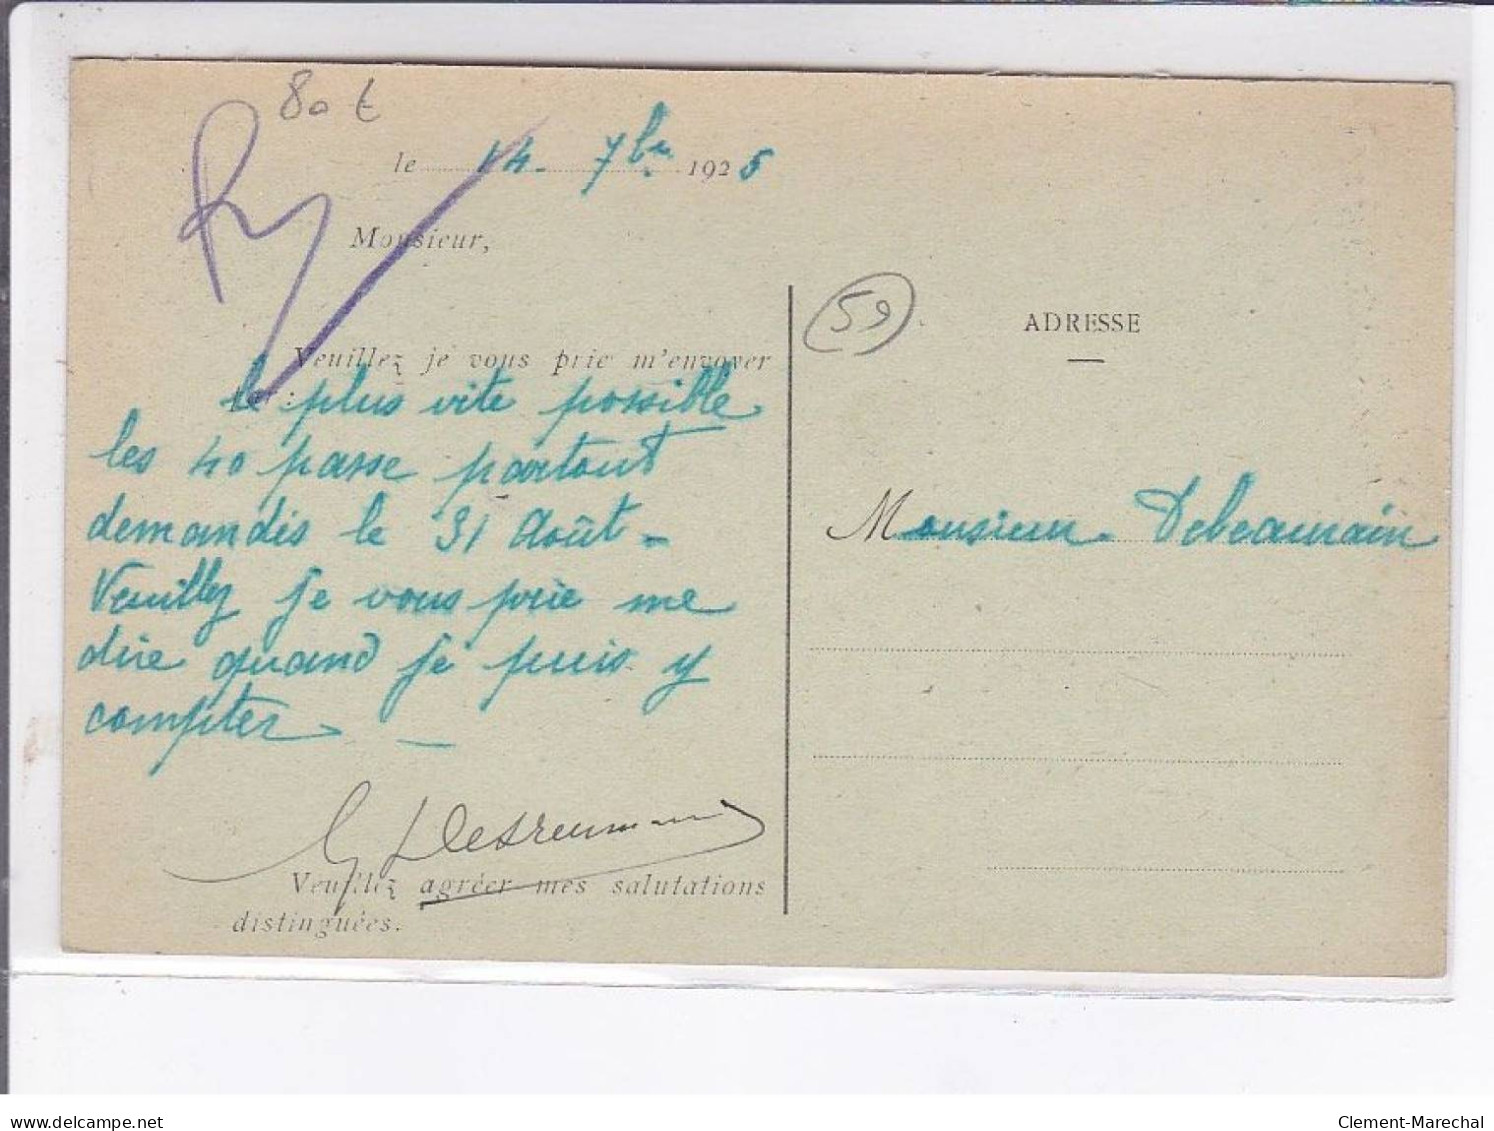 80 €
le 14 7bre 1925
Monsieur,
Veuillez je vous prie m'envoyer
le plus vite possible
les 40 passe partout
demandés le 31 Août -
Veuillez je vous prie me
dire quand je puis y
compter -
Veuillez agréer mes salutations
distinguées.
59
ADRESSE
Monsieur Debeaurain
delcampe.net
Clement-Marechal